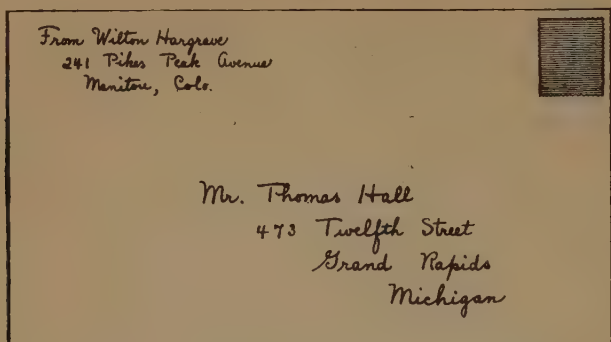 From Wilton Hargrave
241 Pikes Peak Avenue
Manitou, Colo.
Mr. Thomas Hall
473 Twelfth Street
Grand Rapids
Michigan